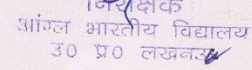 निरीक्षक
आंग्ल भारतीय विद्यालय
उ० प्र० लखनऊ